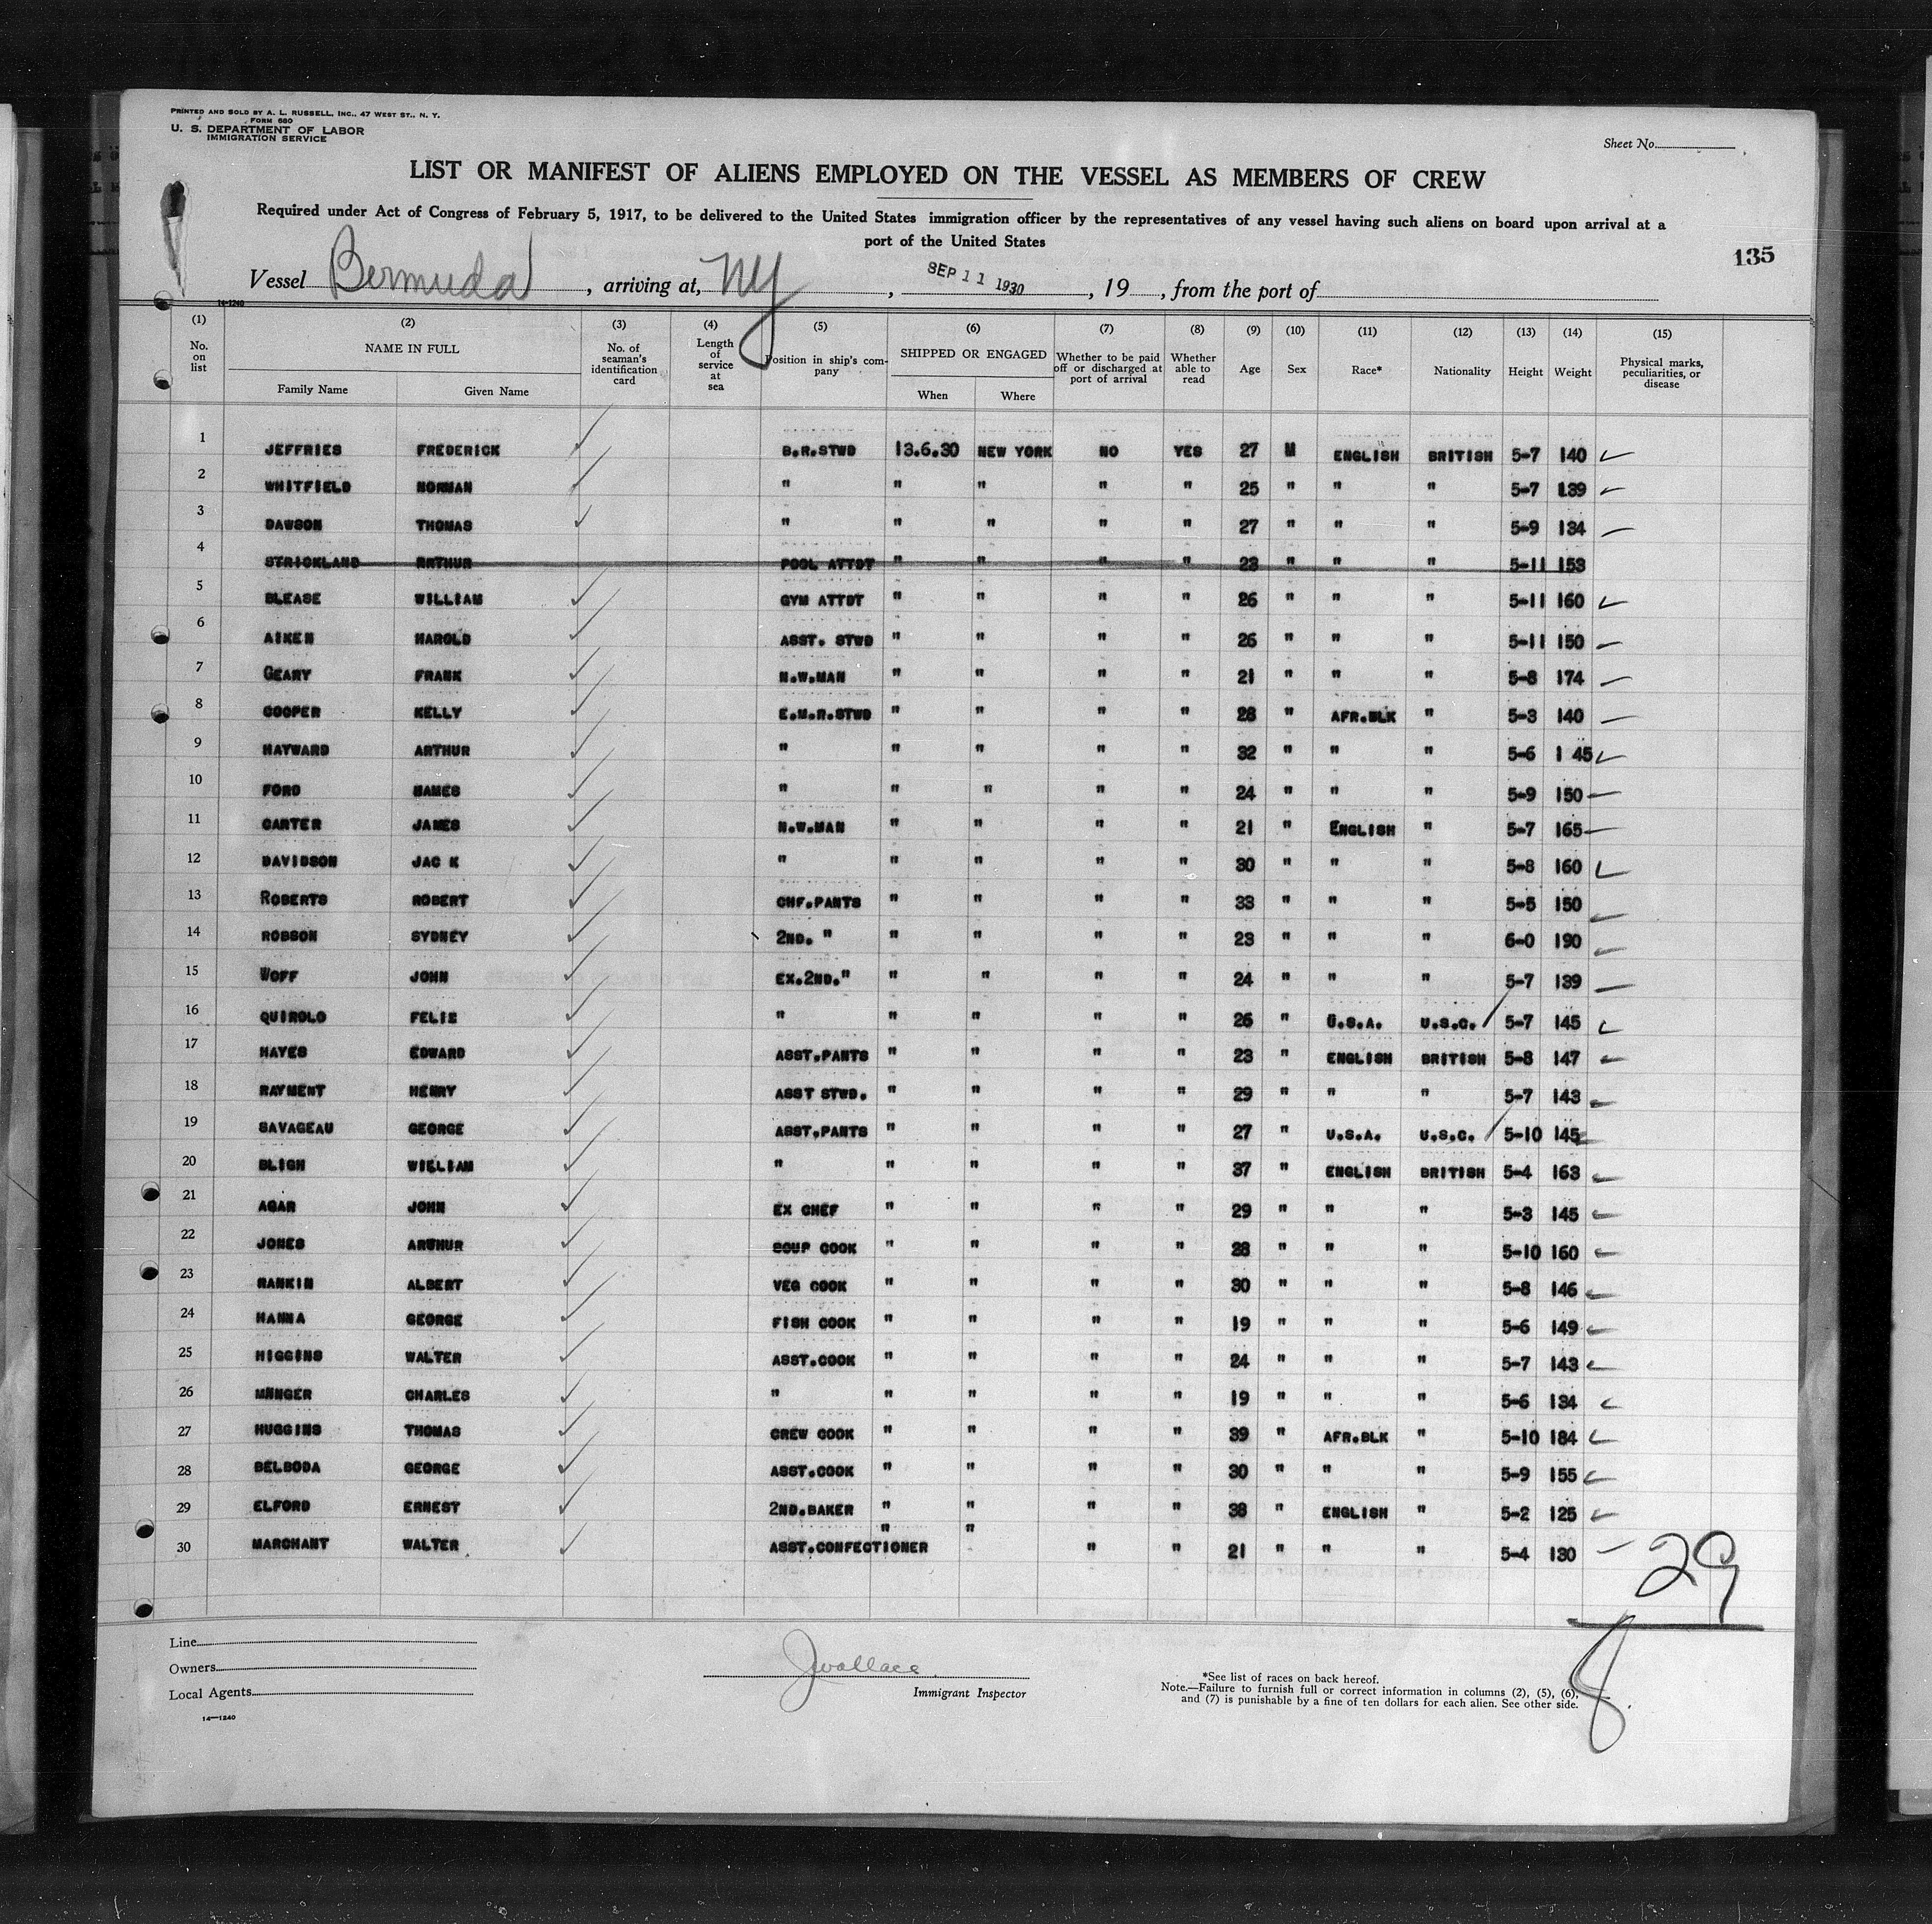 PRINTED AND SOLD BY A. L. RUSSELL, INC., 47 WEST ST., N. Y.
FORM 680
U. S. DEPARTMENT OF LABOR
IMMIGRATION SERVICE
Sheet No.
LIST OR MANIFEST OF ALIENS EMPLOYED ON THE VESSEL AS MEMBERS OF CREW
Required under Act of Congress of February 5, 1917, to be delivered to the United States immigration officer by the representatives of any vessel having such aliens on board upon arrival at a
port of the United States
135
Vessel Bermuda, arriving at, NY, SEP 11 1930, 19, from the port of
14-1240
(1) (2) (3) (4) (5) (6) (7) (8) (9) (10) (11) (12) (13) (14) (15)
No. on list NAME IN FULL Family Name Given Name No. of seaman's identification card Length of service at sea Position in ship's company SHIPPED OR ENGAGED When Where Whether to be paid off or discharged at port of arrival Whether able to read Age Sex Race* Nationality Height Weight Physical marks, peculiarities, or disease
1 JEFFRIES FREDERICK B.R.STWD 13.6.30 NEW YORK NO YES 27 M ENGLISH BRITISH 5-7 140
2 WHITFIELD NORMAN " " " " " 25 " " " 5-7 139
3 DAWSON THOMAS " " " " " 27 " " " 5-9 134
4 STRICKLAND ARTHUR POOL ATTDT " " " " 23 " " " 5-11 153
5 BLEASE WILLIAM GYM ATTDT " " " " 26 " " " 5-11 160
6 AIKEN HAROLD ASST. STWD " " " " 26 " " " 5-11 150
7 GEARY FRANK N.W.MAN " " " " 21 " " " 5-8 174
8 COOPER KELLY E.M.R.STWD " " " " 28 " AFR.BLK " 5-3 140
9 HAYWARD ARTHUR " " " " " 32 " " " 5-6 1 45
10 FORD HAMES " " " " " 24 " " " 5-9 150
11 CARTER JAMES N.W.MAN " " " " 21 " ENGLISH " 5-7 165
12 DAVIDSON JAC K " " " " " 30 " " " 5-8 160
13 ROBERTS ROBERT CHF.PANTS " " " " 33 " " " 5-5 150
14 ROBSON SYDNEY 2ND. " " " " " 23 " " " 6-0 190
15 WOFF JOHN EX.2ND." " " " " 24 " " " 5-7 139
16 QUIROLO FELIE " " " " " 26 " U.S.A. U.S.C. 5-7 145
17 HAYES EDWARD ASST.PANTS " " " " 23 " ENGLISH BRITISH 5-8 147
18 RAYMENT HENRY ASST STWD. " " " " 29 " " " 5-7 143
19 SAVAGEAU GEORGE ASST.PANTS " " " " 27 " U.S.A. U.S.C. 5-10 145
20 BLIGH WILLIAM " " " " " 37 " ENGLISH BRITISH 5-4 163
21 AGAR JOHN EX CHEF " " " " 29 " " " 5-3 145
22 JONES ARTHUR SOUP COOK " " " " 28 " " " 5-10 160
23 RANKIN ALBERT VEG COOK " " " " 30 " " " 5-8 146
24 HANNA GEORGE FISH COOK " " " " 19 " " " 5-6 149
25 HIGGINS WALTER ASST.COOK " " " " 24 " " " 5-7 143
26 MUNGER CHARLES " " " " " 19 " " " 5-6 134
27 HUGGINS THOMAS CREW COOK " " " " 39 " AFR.BLK " 5-10 184
28 BELBODA GEORGE ASST.COOK " " " " 30 " " " 5-9 155
29 ELFORD ERNEST 2ND.BAKER " " " " 38 " ENGLISH " 5-2 125
30 MARCHANT WALTER ASST.CONFECTIONER " " " " 21 " " " 5-4 130
29
8
Line
Owners
Local Agents
14-1240
JWallace
Immigrant Inspector
*See list of races on back hereof.
Note.—Failure to furnish full or correct information in columns (2), (5), (6),
and (7) is punishable by a fine of ten dollars for each alien. See other side.